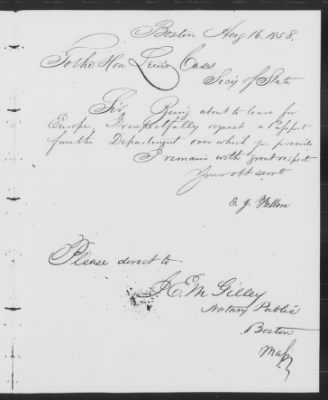 Boston Aug 16. 1858.
To the Hon Lewis Cass
Secy of State
Sir Being about to leave for
Europe I respectfully request a Passpt
from the Department over which you preside
I remain with great respect
Your obt servt
E. J. Fellon
Please direct to
J. E. M Gilley
Notary Public
Boston
Mass